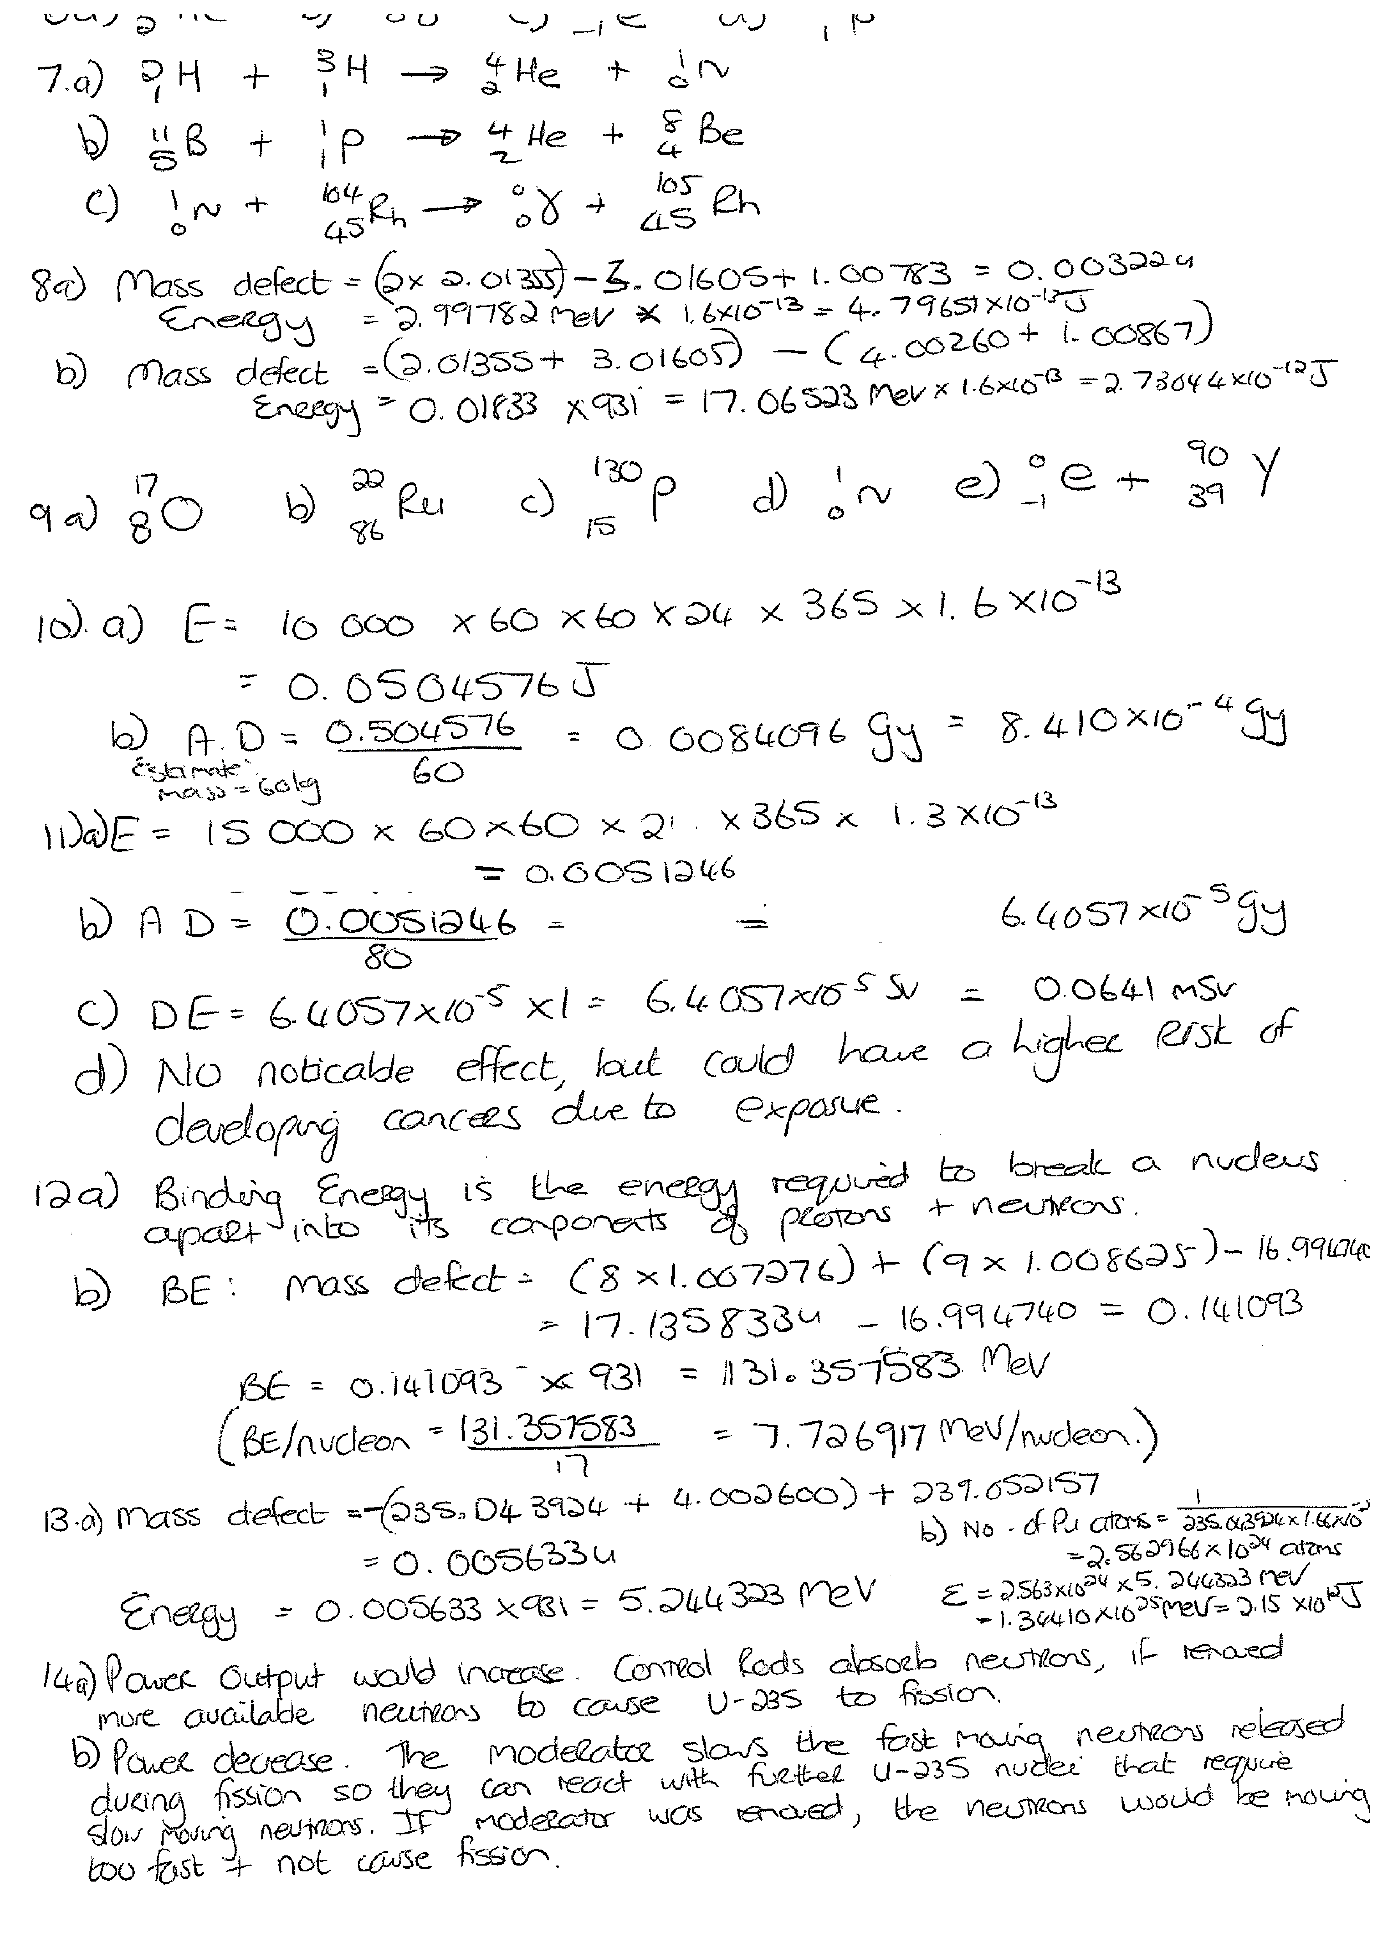 7.a) ²₁H + ³₁H → ⁴₂He + ¹₀n
b) ¹¹₅B + ¹₁p → ⁴₂He + ⁸₄Be
c) ¹₀n + ¹⁰⁴₄₅Rh → ⁰₀γ + ¹⁰⁵₄₅Rh
8a) Mass defect = (2x 2.01355) – 3.01605 + 1.00783 = 0.00322u
Energy = 2.99782 MeV x 1.6x10⁻¹³ = 4.79651x10⁻¹³J
b) Mass defect = (2.01355 + 3.01605) – (4.00260 + 1.00867)
Energy = 0.01833 x 931 = 17.06523 MeV x 1.6x10⁻¹³ = 2.73044x10⁻¹²J
9a) ¹⁷₈O b) ²²₈₆Ru c) ¹³⁰₁₅P d) ¹₀n e) ⁰₋₁e + ⁹⁰₃₉Y
10). a) E = 10 000 x 60 x 60 x 24 x 365 x 1.6 x10⁻¹³
= 0.0504576 J
b) A.D = 0.504576/60 = 0.0084096 Gy = 8.410x10⁻⁴ Gy
Estimate:
mass = 60kg
11)a)E = 15 000 x 60 x 60 x 2 x 365 x 1.3 x10⁻¹³
= 0.0051246
b) A D = 0.0051246/80 = = 6.4057 x10⁻⁵ Gy
c) DE = 6.4057x10⁻⁵ x1 = 6.4057x10⁻⁵ Sv = 0.0641 mSv
d) No noticable effect, but could have a higher risk of
developing cancers due to exposue.
12a) Binding Energy is the energy required to break a nucleus
apart into its components of protons + neutrons.
b) BE: Mass defect = (8 x 1.007276) + (9 x 1.008625) – 16.994740
= 17.135833u – 16.994740 = 0.141093
BE = 0.141093 x 931 = 131.357583 MeV
(BE/nucleon = 131.357583/17 = 7.726917 MeV/nucleon.)
13.a) Mass defect = -(235.043924 + 4.002600) + 239.052157
= 0.005633u
Energy = 0.005633 x 931 = 5.244323 MeV
b) No. of Pu atoms = 1/235.043924x1.66x10
= 2.562966 x 10²⁴ atoms
E = 2.563x10²⁴ x 5.244323 MeV
= 1.34410 x10²⁵ MeV = 2.15 x10¹²J
14a) Power Output would increase. Control Rods absorb neutrons, if removed
more available neutrons to cause U-235 to fission.
b) Power decrease. The moderator slows the fast moving neutrons released
during fission so they can react with further U-235 nuclei that require
slow moving neutrons. If moderator was removed, the neutrons would be moving
too fast + not cause fission.